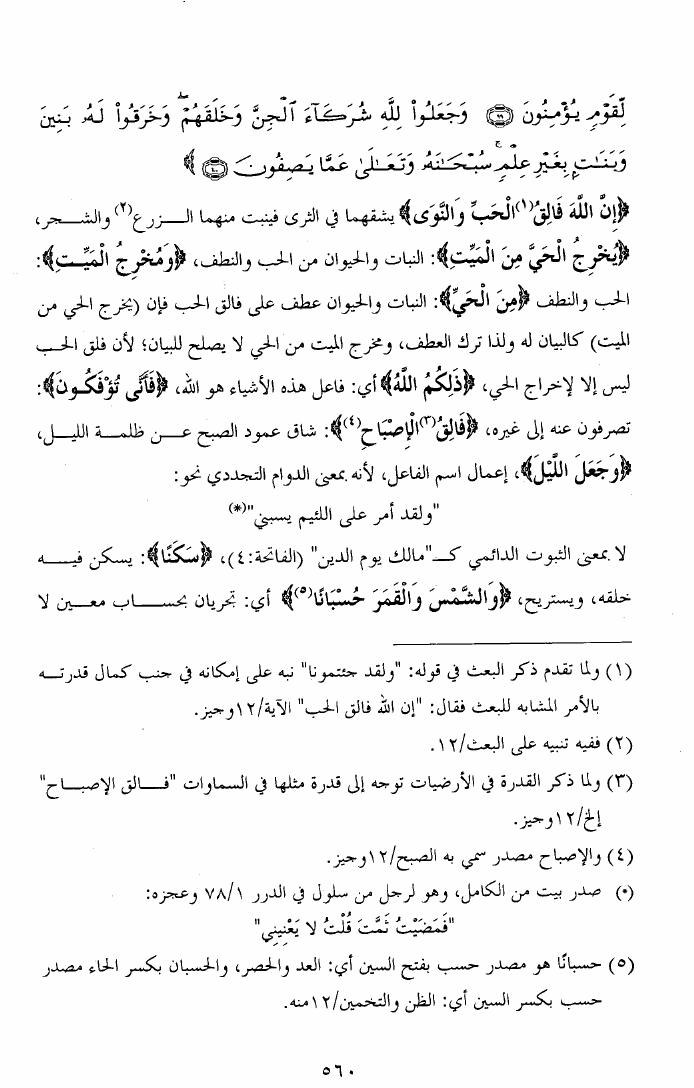 لِّقَوْمٍ يُؤْمِنُونَ ۝٩٩ وَجَعَلُواْ لِلَّهِ شُرَكَآءَ ٱلْجِنَّ وَخَلَقَهُمْ ۖ وَخَرَقُواْ لَهُۥ بَنِينَ
وَبَنَٰتٍۭ بِغَيْرِ عِلْمٍ ۚ سُبْحَٰنَهُۥ وَتَعَٰلَىٰ عَمَّا يَصِفُونَ ۝١٠٠ ﴾
﴿إِنَّ اللَّهَ فَالِقُ(١) الْحَبِّ وَالنَّوَى﴾ يشقهما في الثرى فينبت منهما الـزرع(٢) والشـجر،
﴿يُخْرِجُ الْحَيَّ مِنَ الْمَيِّتِ﴾: النبات والحيوان من الحب والنطف، ﴿وَمُخْرِجُ الْمَيِّـتِ﴾:
الحب والنطف ﴿مِنَ الْحَيِّ﴾: النبات والحيوان عطف على فالق الحب فإن (يخرج الحي من
الميت) كالبيان له ولذا ترك العطف، ومخرج الميت من الحي لا يصلح للبيان؛ لأن فلق الحـب
ليس إلا لإخراج الحي، ﴿ذَلِكُمُ اللَّهُ﴾ أي: فاعل هذه الأشياء هو الله، ﴿فَأَنَّى تُؤْفَكُـونَ﴾:
تصرفون عنه إلى غيره، ﴿فَالِقُ(٣) الْإِصْبَاحِ(٤)﴾: شاق عمود الصبح عـن ظلمـة الليـل،
﴿وَجَعَلَ اللَّيْلَ﴾، إعمال اسم الفاعل، لأنه بمعنى الدوام التجددي نحو:
"ولقد أمر على اللئيم يسبني"(*)
لا بمعنى الثبوت الدائمي كـ"مالك يوم الدين" (الفاتحة:٤)، ﴿سَكَنًا﴾: يسكن فيـه
خلقه، ويستريح، ﴿وَالشَّمْسَ وَالْقَمَرَ حُسْبَانًا(٥)﴾ أي: تجريان بحسـاب معـين لا
(١) ولما تقدم ذكر البعث في قوله: "ولقد جئتمونا" نبه على إمكانه في جنب كمال قدرتـه
بالأمر المشابه للبعث فقال: "إن الله فالق الحب" الآية/١٢وجيز.
(٢) ففيه تنبيه على البعث/١٢.
(٣) ولما ذكر القدرة في الأرضيات توجه إلى قدرة مثلها في السماوات "فـالق الإصبـاح"
إلخ/١٢وجيز.
(٤) والإصباح مصدر سمي به الصبح/١٢وجيز.
(*) صدر بيت من الكامل، وهو لرجل من سلول في الدرر ٧٨/١ وعجزه:
"فَمَضَيْتُ ثَمَّتَ قُلْتُ لا يَعْنِينِي"
(٥) حسبانًا هو مصدر حسب بفتح السين أي: العد والحصر، والحسبان بكسر الحاء مصدر
حسب بكسر السين أي: الظن والتخمين/١٢منه.
٥٦٠